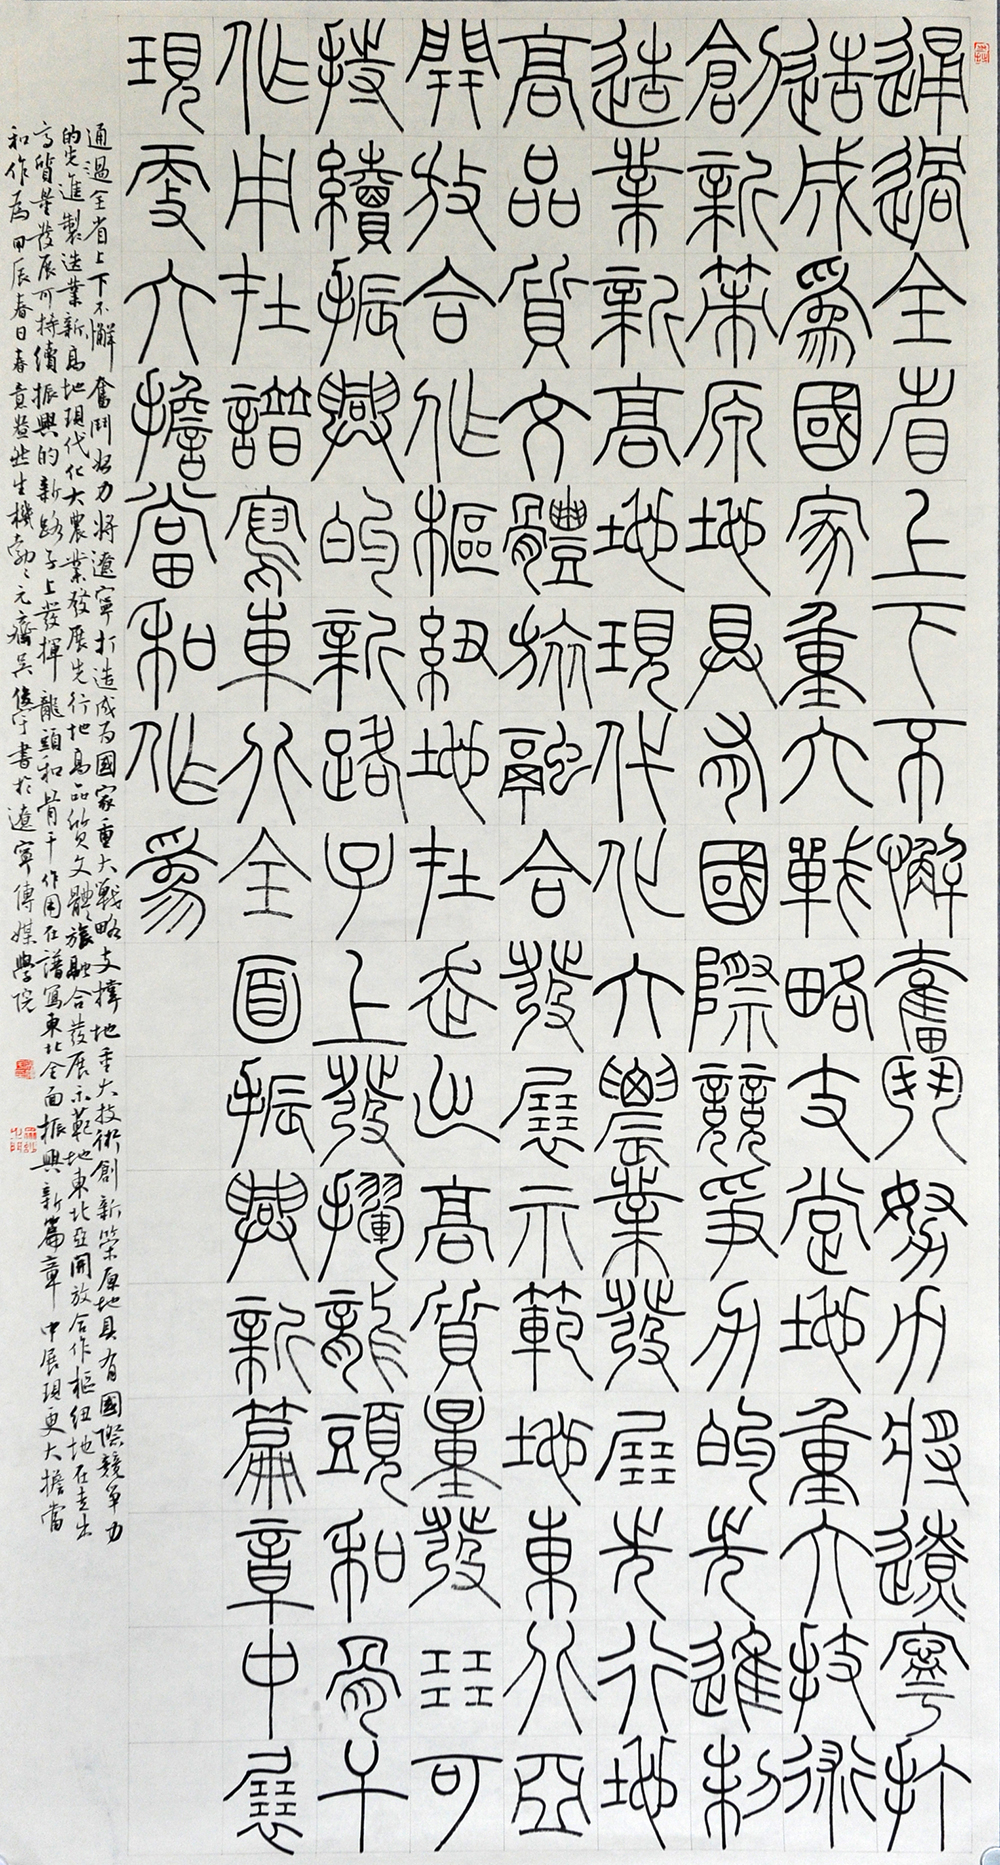 通過全省上下不懈奮鬥努力將遼寧打
造成為國家重大戰略支撐地重大技術
創新策原地具有國際競爭力的先進制
造業新高地現代化大農業發展先行地
高品質文體旅融合發展示範地東北亞
開放合作樞紐地在走出高質量發展可
持續振興的新路子上發揮龍頭和骨干
作用在譜寫東北全面振興新篇章中展
現更大擔當和作為
通過全省上下不懈奮鬥努力將遼寧打造成為國家重大戰略支撐地重大技術創新策原地具有國際競爭力
的先進製造業新高地現代化大農業發展先行地高品質文體旅融合發展示範地東北亞開放合作樞紐地在走出
高質量發展可持續振興的新路子上發揮龍頭和骨干作用在譜寫東北全面振興新篇章中展現更大擔當
和作為甲辰春日春意盎然生機勃勃元齋吳書於遼寧傳媒學院